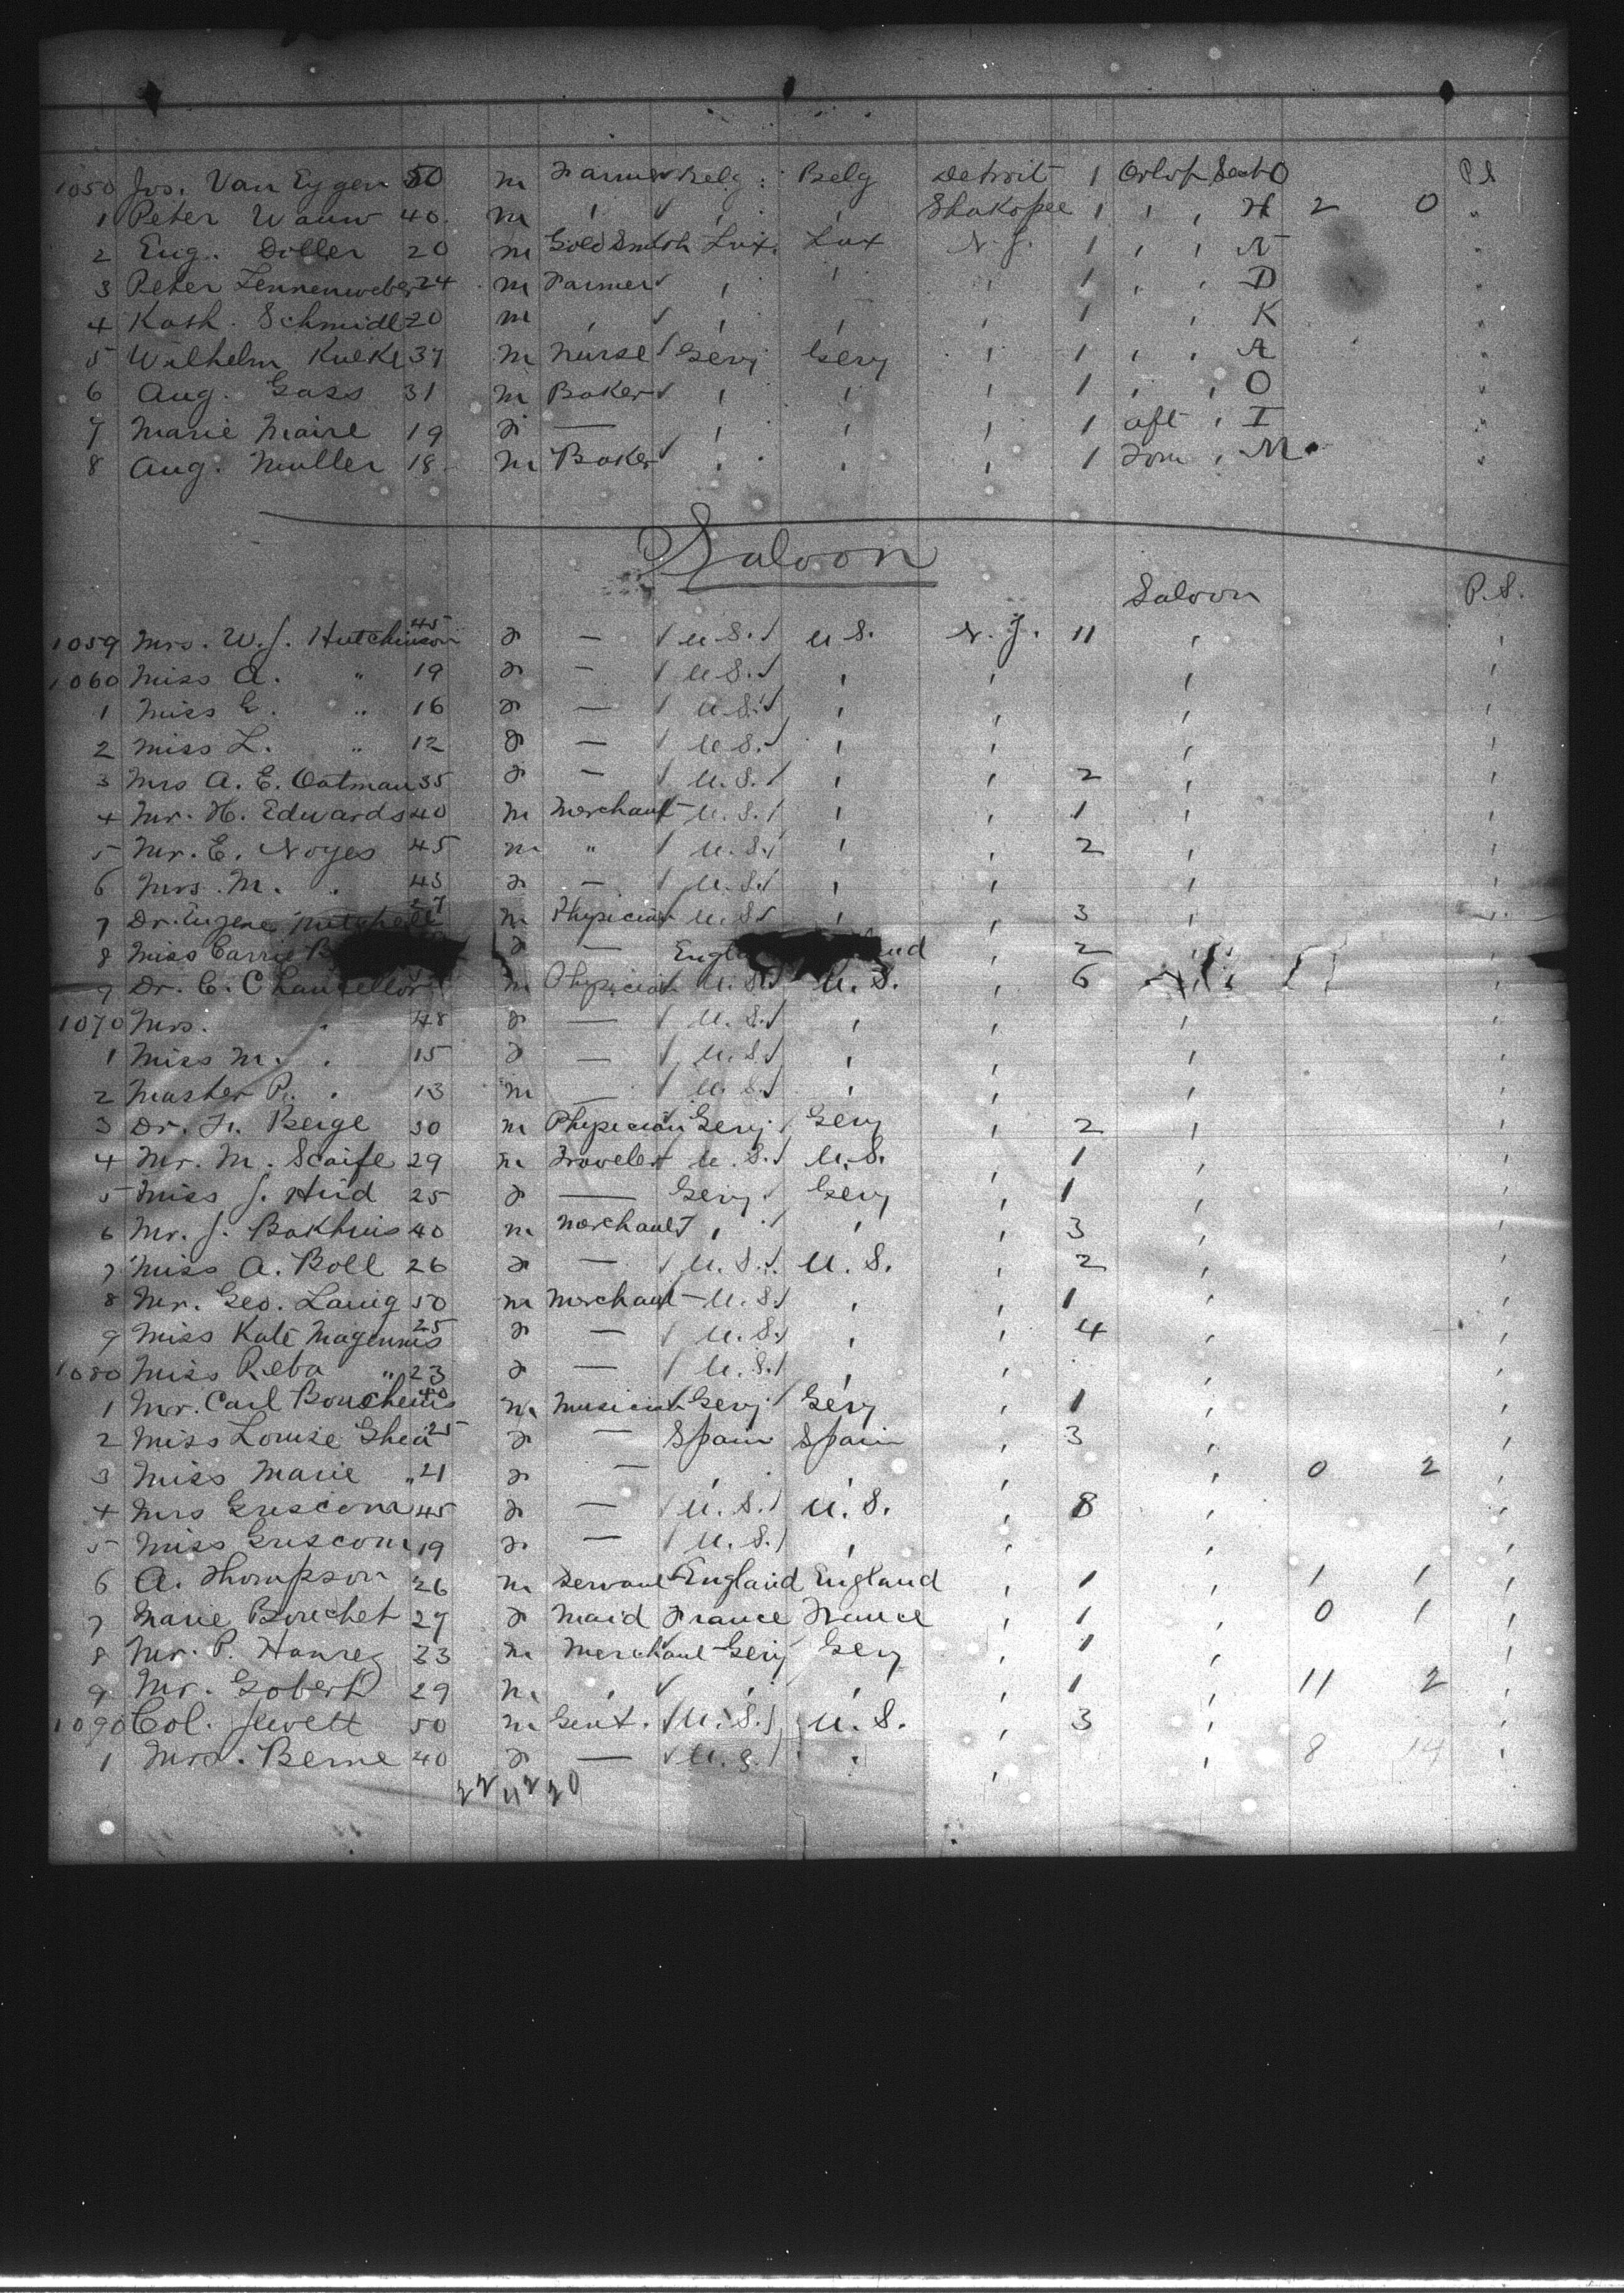 1050 Jos. Van Eygen 50 m Farmer Belg. Belg Detroit 1 Orlop Sect O P.S
1 Peter Wauw 40. m " " " Shakopee 1 " " H 2 0 "
2 Eug. Doller 20 m GoldSmith Lux. Lux N.Y. 1 " " N "
3 Peter Zennenweber 24 m Farmer " " " 1 " " D "
4 Kath. Schmidt 20 m " " " " 1 " K "
5 Wilhelm Kueke 37 m Nurse Gery Gery " 1 " " A "
6 Aug. Gass 31 m Baker " " " 1 " " O "
7 Marie Maire 19 F — " " " 1 aft " I "
8 Aug. Muller 18 m Baker " " " 1 Forw " M "
Saloon
Saloon P.S.
1059 Mrs. W. J. Hutchinson 45 F — U.S. U.S. N.Y. 11 " "
1060 Miss A. " 19 F — U.S. " " " "
1 Miss E. " 16 F — U.S. " " " "
2 Miss L. " 12 F — U.S. " " " "
3 Mrs A. E. Oatman 35 F — U.S. " " 2 " "
4 Mr. H. Edwards 40 m Merchant U.S. " " 1 " "
5 Mr. E. Noyes 45 m " U.S. " " 2 " "
6 Mrs. M. " 43 F — U.S. " " " "
7 Dr. Eugene Mitchell 27 m Physician U.S. " " 3 " "
8 Miss Carrie F — " 2 "
9 Dr. C. Chancellor m Physician U.S. U.S. " 6 "
1070 Mrs. " 48 F — U.S. " " " "
1 Miss M. " 15 F — U.S. " " " "
2 Master P. " 13 m — U.S. " " " "
3 Dr. Fr. Berge 30 m Physician Gery Gery " 2 " "
4 Mr. M. Scaife 29 m Traveler U.S. U.S. " 1 " "
5 Miss J. Hud 25 F — Gery Gery " 1 " "
6 Mr. J. Bakhuis 40 m Merchant " " " 3 " "
7 Miss A. Boll 26 F — U.S. U.S. " 2 " "
8 Mr. Geo. Lauig 50 m Merchant U.S. " " 1 " "
9 Miss Kate Magennis 25 F — U.S. " " 4 " "
1080 Miss Reba " 23 F — U.S. " " " "
1 Mr. Carl m Musician Gery Gery " 1 " "
2 Miss Louise Ghea 25 F — Spain Spain " 3 " "
3 Miss Marie " 21 F — " " " " 0 2 "
4 Mrs Griscom 45 F — U.S. U.S. " 8 " "
5 Miss Griscom 19 F — U.S. " " " "
6 A. Thompson 26 m Servant England England " 1 " 1 1 "
7 Marie Bouchet 27 F Maid France France " 1 " 0 1 "
8 Mr. P. Hanrez 33 m Merchant Gery Gery " 1 " "
9 Mr. Gobert 29 m " " " " 1 " 11 2 "
1090 Col. Jewett 50 m Gent. U.S. U.S. " 3 " "
1 Mrs. Berne 40 F — U.S. " " " 8 14 "